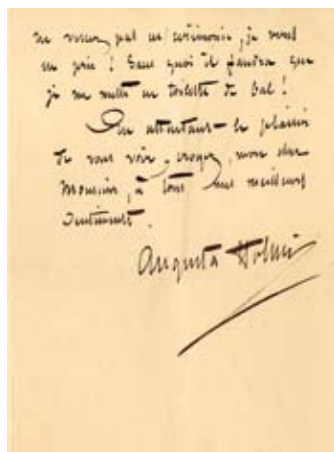 ne venez pas en cérémonie, je vous
en prie ! Sans quoi il faudra que
je me mette en toilette de bal !
En attendant le plaisir
de vous voir, croyez, mon cher
Monsieur, à tous mes meilleurs
sentiments.
Augusta Holmès